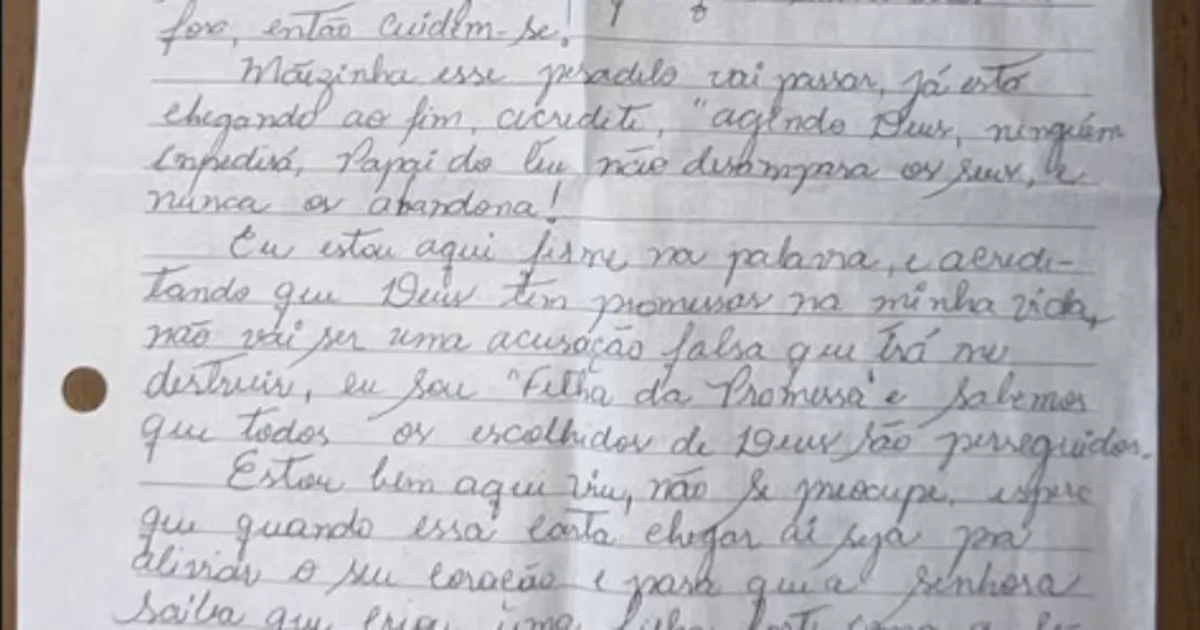 fora, então cuidem-se!
Mãezinha esse pesadelo vai passar, já está
chegando ao fim, acredite, "agindo Deus, ninguém
impedirá, Papai do Céu não desampara os seus, e
nunca os abandona!
Eu estou aqui firme na palavra, e acredi-
tando que Deus tem promessas na minha vida,
não vai ser uma acusação falsa que irá me
destruir, eu sou "Filha da Promessa" e sabemos
que todos os escolhidos de Deus são perseguidos.
Estou bem aqui viu, não se preocupe. espero
que quando essa carta chegar aí seja pra
aliviar o seu coração e para que a senhora
saiba que criou uma filha forte